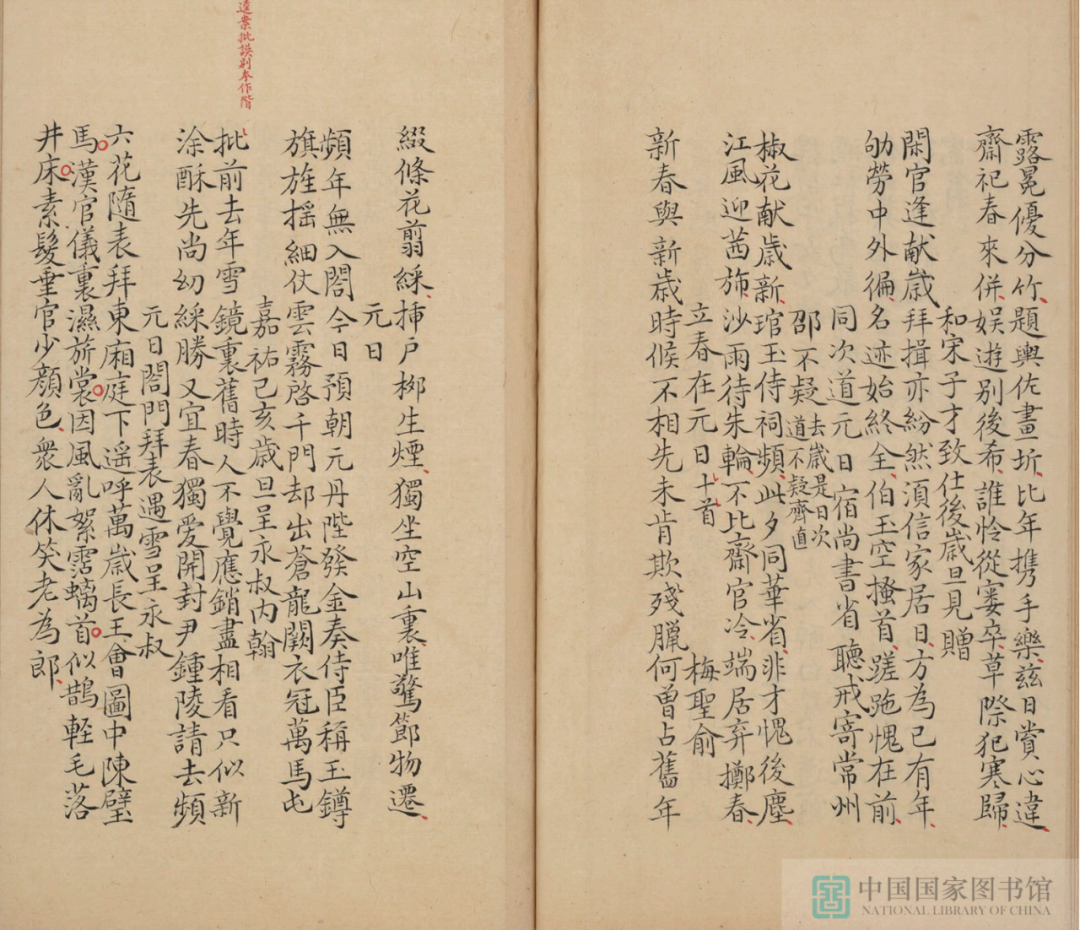 露冕優分竹題輿佐畫圻比年携手樂兹日賞心違
齋祀春來併娱遊別後希誰怜從寠卒草際犯寒歸
和宋子才致仕後歳旦見贈
閑官逢献歳拜揖亦紛然湏信家居日方為已有年
劬勞中外徧名迹始終全伯玉空搔首蹉跎愧在前
同次道元日宿尚書省聽戒寄常州
邵不疑去歳是日次道不疑齊直
椒花献歳新琯玉侍祠頻此夕同華省非才愧後塵
江風迎茜斾沙雨待朱輪不比齋官冷端居弃擲春
立春在元日十首 梅聖俞
新春與新歳時候不相先未肯欺殘臘何曾占舊年
綴條花翦綵揷户桞生煙獨坐空山裏唯驚節物遷
元日
頻年無入閤今日預朝元丹陛發金奏侍臣稱玉罇
旗旌揺細仗雲霧啓千門却出蒼龍闕衣冠萬馬屯
嘉祐己亥歳旦呈永叔内翰
批前去年雪鏡裏舊時人不覺應銷盡相看只似新
涂酥先尚幼綵勝又宜春獨爱開封尹鍾陵請去頻
元日閤門拜表遇雪呈永叔
六花隨表拜東廂庭下遥呼萬歳長王會圖中陳璧
馬漢官儀裏濕旂裳因風亂絮霑螭首似鵲輕毛落
井床素髮垂官少顔色衆人休笑老為郎
逵案批誤别本作階
中国国家图书馆
NATIONAL LIBRARY OF CHINA